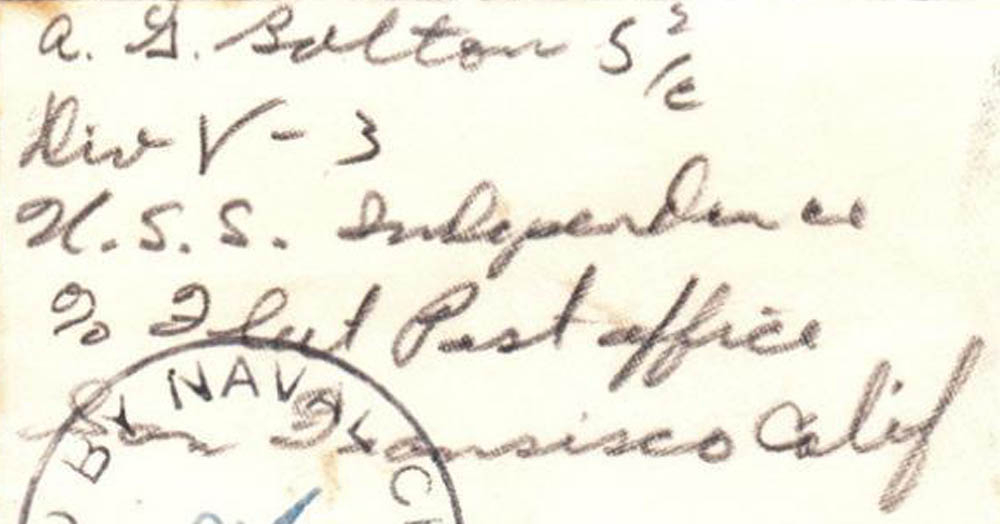 A. G. Bolton S 2/c
Div V-3
U.S.S. Independence
% Fleet Post office
San Fransisco Calif
BY NAVAL